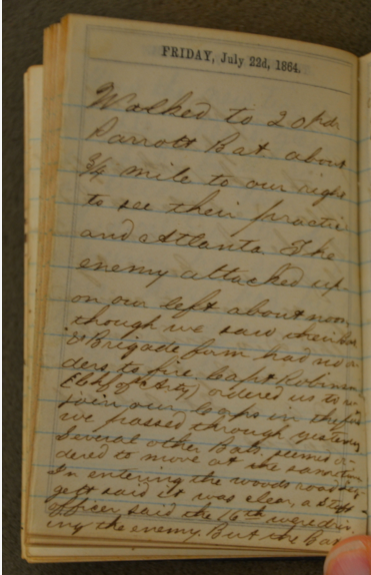 FRIDAY, July 22d, 1864.
Walked to 20 Pdr
Parrott Bat. about
3/4 mile to our right
to see their practice
and Atlanta. The
enemy attacked up
on our left about noon,
though we saw their
Brigade form had no or
ders to fire. Capt Robinson
(Chf of Arty) ordered us to re
join our Corps in the
we passed through yesterday
Several other Bats. seemed or
dered to move at the same time
In entering the woods road
gett said it was clear, a staff
officer said the 16th were driv
ing the enemy. But the Bat